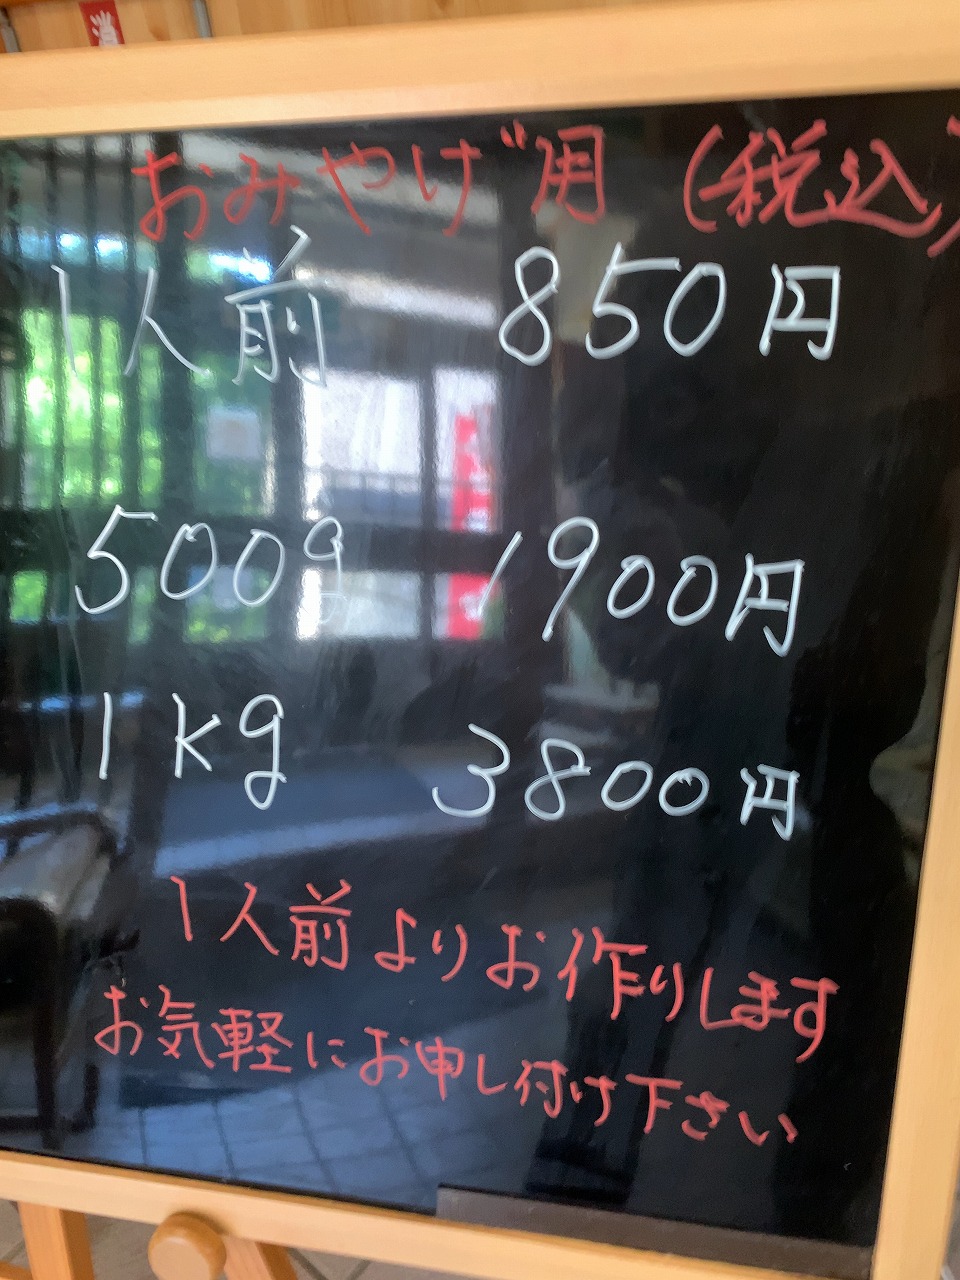 おみやげ用 (税込)
1人前 850円
500g 1900円
1kg 3800円
1人前よりお作りします
お気軽にお申し付け下さい